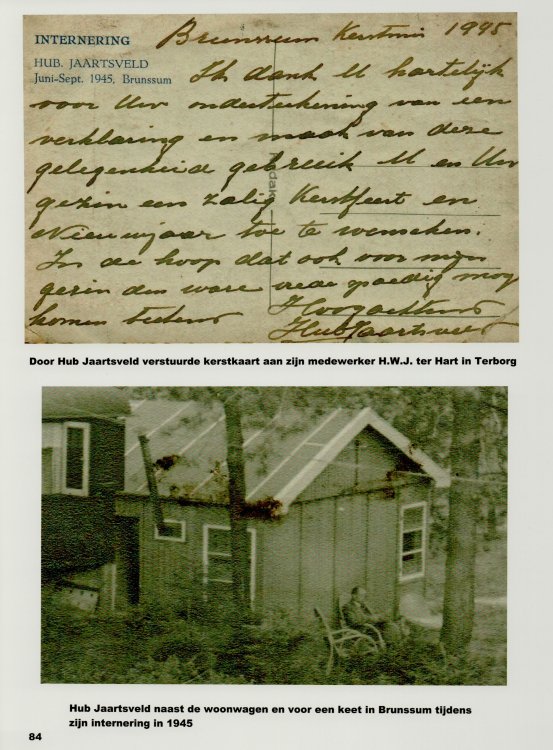 INTERNERING
HUB. JAARTSVELD
Juni-Sept. 1945, Brunssum
Brunssum Kerstmis 1945
Ik dank U hartelijk
voor Uw ondertekening van een
verklaring en maak van deze
gelegenheid gebruik U en Uw
gezin een zalig Kerstfeest en
Nieuwjaar toe te wenschen.
In de hoop dat ook voor mijn
gezin den ware vrede spoedig mog
komen
Hoogachtend
Hub Jaartsveld
Kodak
Door Hub Jaartsveld verstuurde kerstkaart aan zijn medewerker H.W.J. ter Hart in Terborg
Hub Jaartsveld naast de woonwagen en voor een keet in Brunssum tijdens
zijn internering in 1945
84